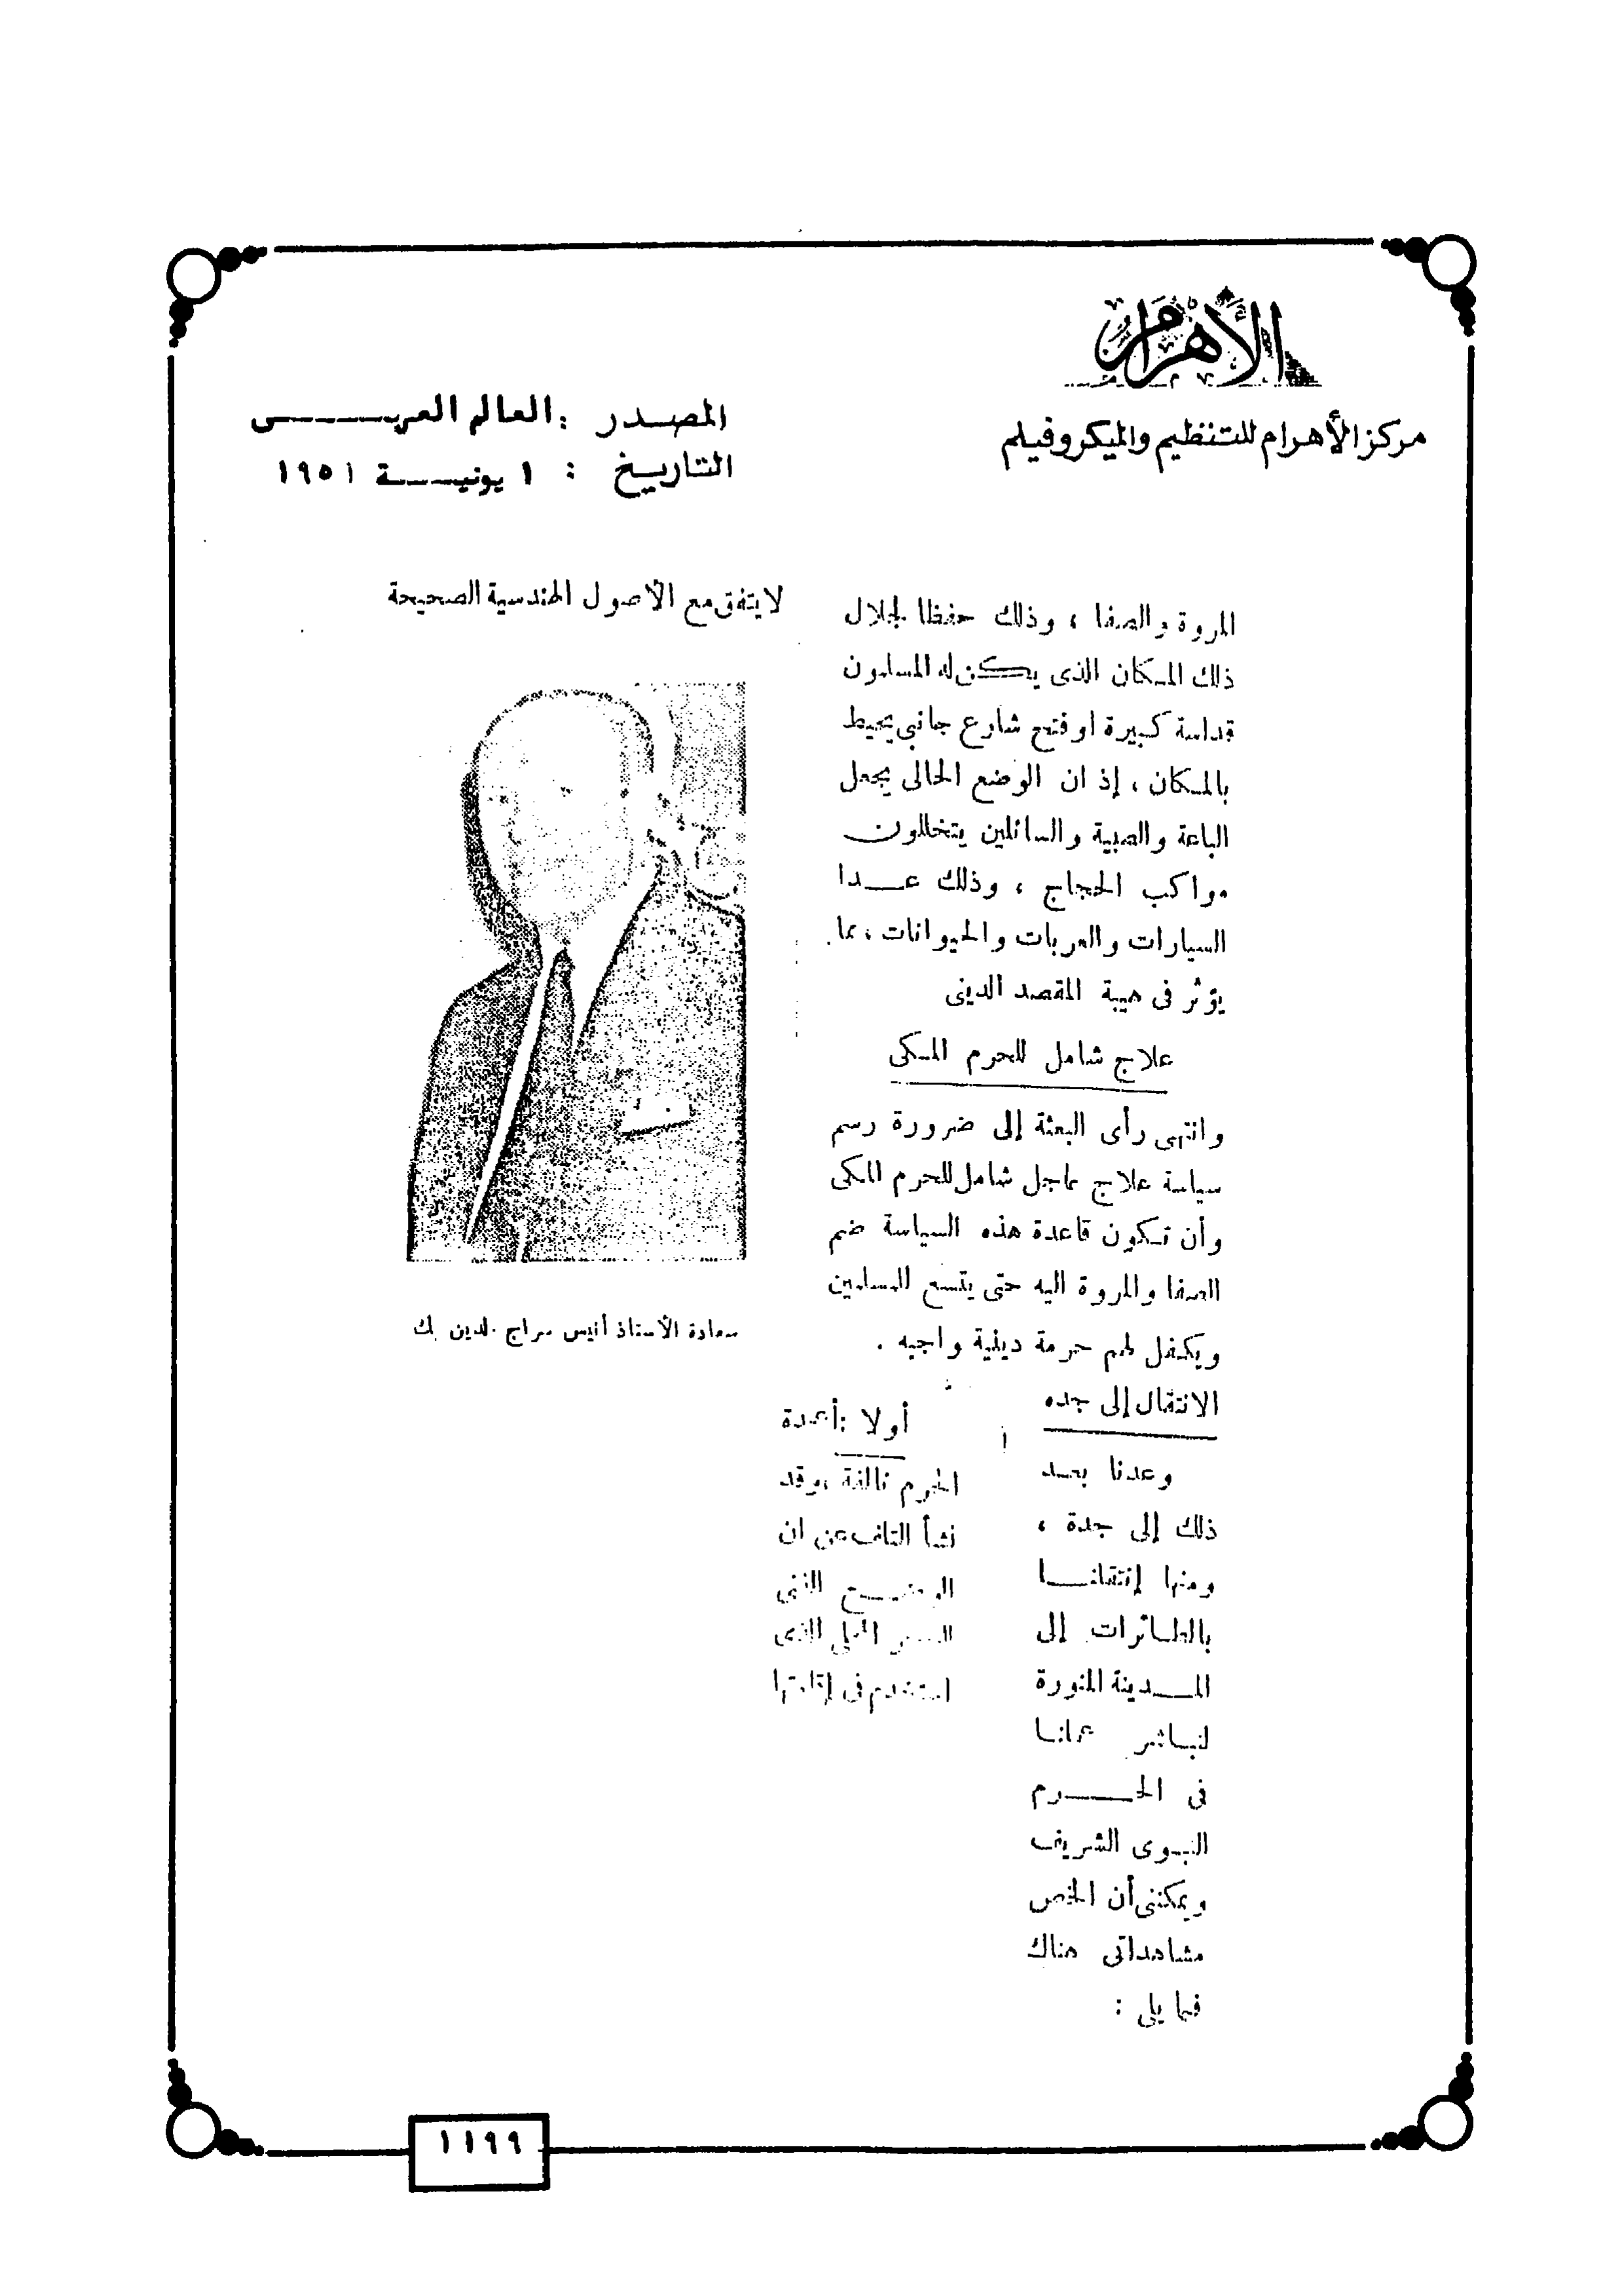 الأهرام
مركز الأهرام للتنظيم والميكروفيلم
المصدر : العالم العربى
التاريخ : ١ يونية ١٩٥١
المروة والصفا ، وذلك حفظا لجلال
ذلك المكان الذى يكن له المسلمون
قداسة كبيرة او فتح شارع جانبى يحيط
بالمكان ، إذ ان الوضع الحالى يجعل
الباعة والصبية والسائلين يتخللون
مواكب الحجاج ، وذلك عدا
السيارات والعربات والحيوانات ، مما
يؤثر فى هيبة المقصد الدينى
علاج شامل للحرم المكى
وانتهى رأى البعثة إلى ضرورة رسم
سياسة علاج عاجل شامل للحرم المكى
وأن تكون قاعدة هذه السياسة ضم
الصفا والمروة اليه حتى يتسع للمسلمين
ويكفل لهم حرمة دينية واجبه .
الانتقال إلى جده
وعدنا بعد
ذلك إلى جدة ،
ومنها إنتقلنا
بالطائرات إلى
المدينة المنورة
لنباشر عملنا
فى الحرم
النبوى الشريف
ويمكننى أن الخص
مشاهداتى هناك
فيما يلى :
أولا : أعمدة
الحرم تالفة ، وقد
نشأ التلف عن ان
الوضع الفنى
الذى
استخدم فى إقامتها
لا يتفق مع الأصول الهندسية الصحيحة
سعادة الأستاذ أنيس سراج الدين بك
١١٩٩